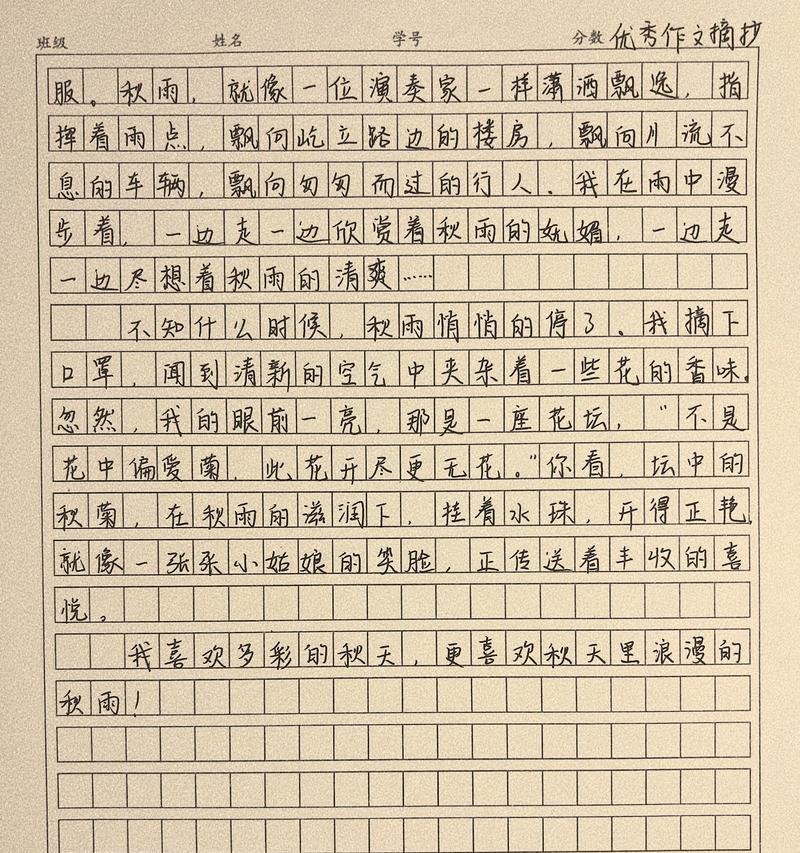 班级 姓名 学号 分数 优秀作文摘抄
服。秋雨，就像一位演奏家一样潇洒飘逸，指
挥着雨点，飘向屹立路边的楼房，飘向川流不
息的车辆，飘向匆匆而过的行人、我在雨中漫
步着，一边走一边欣赏着秋雨的妩媚，一边走
一边尽想着秋雨的清爽……
不知什么时候，秋雨悄悄的停了。我摘下
口罩，闻到清新的空气中夹杂着一些花的香味。
忽然，我的眼前一亮，那是一座花坛，“不是
花中偏爱菊，此花开尽更无花。”你看，坛中的
秋菊，在秋雨的滋润下，挂着水珠，开得正艳，
就像一张张小姑娘的笑脸，正传送着丰收的喜
悦。
我喜欢多彩的秋天，更喜欢秋天里浪漫的
秋雨！